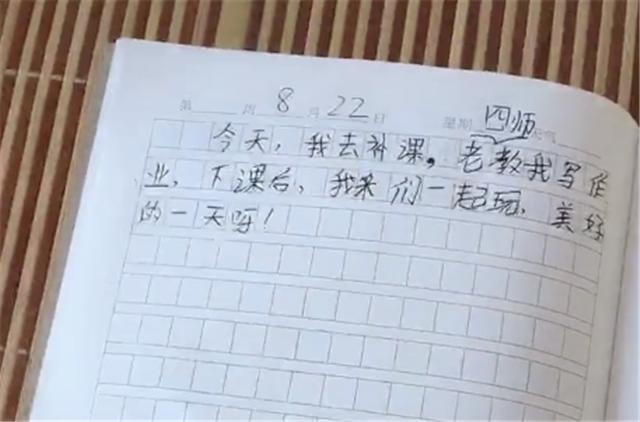 第 周 8 月 22 日 星期 四 天气
师
今天，我去补课，老教我写作
业，下课后，我来们一起玩，美好
的一天呀！